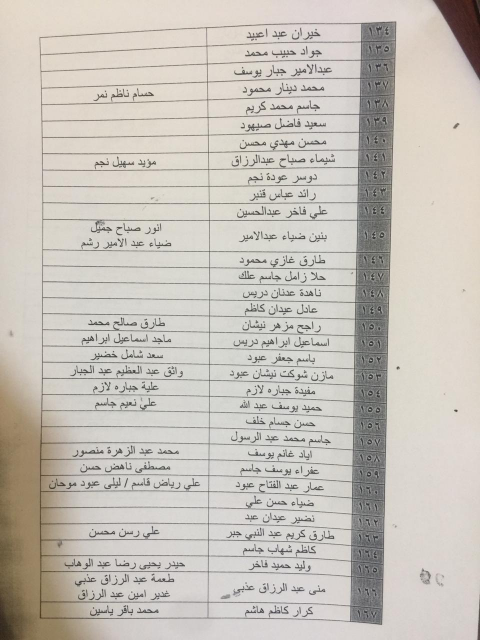 ١٣٤ خيران عبد اعبيد
١٣٥ جواد حبيب محمد
١٣٦ عبدالامير جبار يوسف
١٣٧ محمد دينار محمود حسام ناظم نمر
١٣٨ جاسم محمد كريم
١٣٩ سعيد فاضل صيهود
١٤٠ محسن مهدي محسن
١٤١ شيماء صباح عبدالرزاق مؤيد سهيل نجم
١٤٢ دوسر عودة نجم
١٤٣ رائد عباس قنبر
١٤٤ علي فاخر عبدالحسين
١٤٥ بنين ضياء عبدالامير انور صباح جميل
ضياء عبد الامير رشم
١٤٦ طارق غازي محمود
١٤٧ حلا زامل جاسم علك
١٤٨ ناهدة عدنان دريس
١٤٩ عادل عيدان كاظم
١٥٠ راجح مزهر نيشان طارق صالح محمد
١٥١ اسماعيل ابراهيم دريس ماجد اسماعيل ابراهيم
١٥٢ باسم جعفر عبود سعد شامل خضير
١٥٣ مازن شوكت نيشان عبود واثق عبد العظيم عبد الجبار
١٥٤ مفيدة جباره لازم علية جباره لازم
١٥٥ حميد يوسف عبد الله علي نعيم جاسم
١٥٦ حسن جسام خلف
١٥٧ جاسم محمد عبد الرسول
١٥٨ اياد غانم يوسف محمد عبد الزهرة منصور
١٥٩ عفراء يوسف جاسم مصطفى ناهض حسن
١٦٠ عمار عبد الفتاح عبود علي رياض قاسم / ليلى عبود موحان
١٦١ ضياء حسن علي
١٦٢ نضير عيدان عبد
١٦٣ طارق كريم عبد النبي جبر علي رسن محسن
١٦٤ كاظم شهاب جاسم
١٦٥ وليد حميد فاخر حيدر يحيى رضا عبد الوهاب
١٦٦ منى عبد الرزاق عذبي طعمة عبد الرزاق عذبي
غدير امين عبد الرزاق
١٦٧ كرار كاظم هاشم محمد باقر ياسين